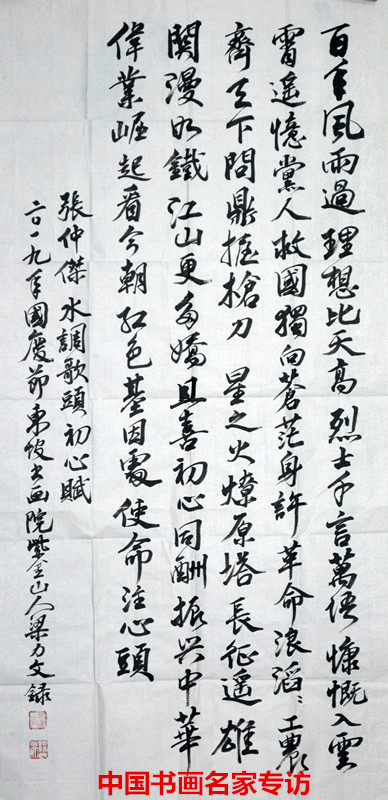 百年風雨過理想比天高烈士千言萬语慷慨入雲
霄遥憶黨人救國獨向蒼茫身許革命浪滔滔工農
齊天下問鼎握槍刀星之火燎原塔長征遥雄
関漫如鐵江山更多嬌且喜初心同酬振兴中華
偉業崛起看今朝紅色基因處使命注心頭
張仲傑水調歌頭初心賦
二〇一九年國慶節東坡书画院紫金山人梁力文録
中国书画名家专访